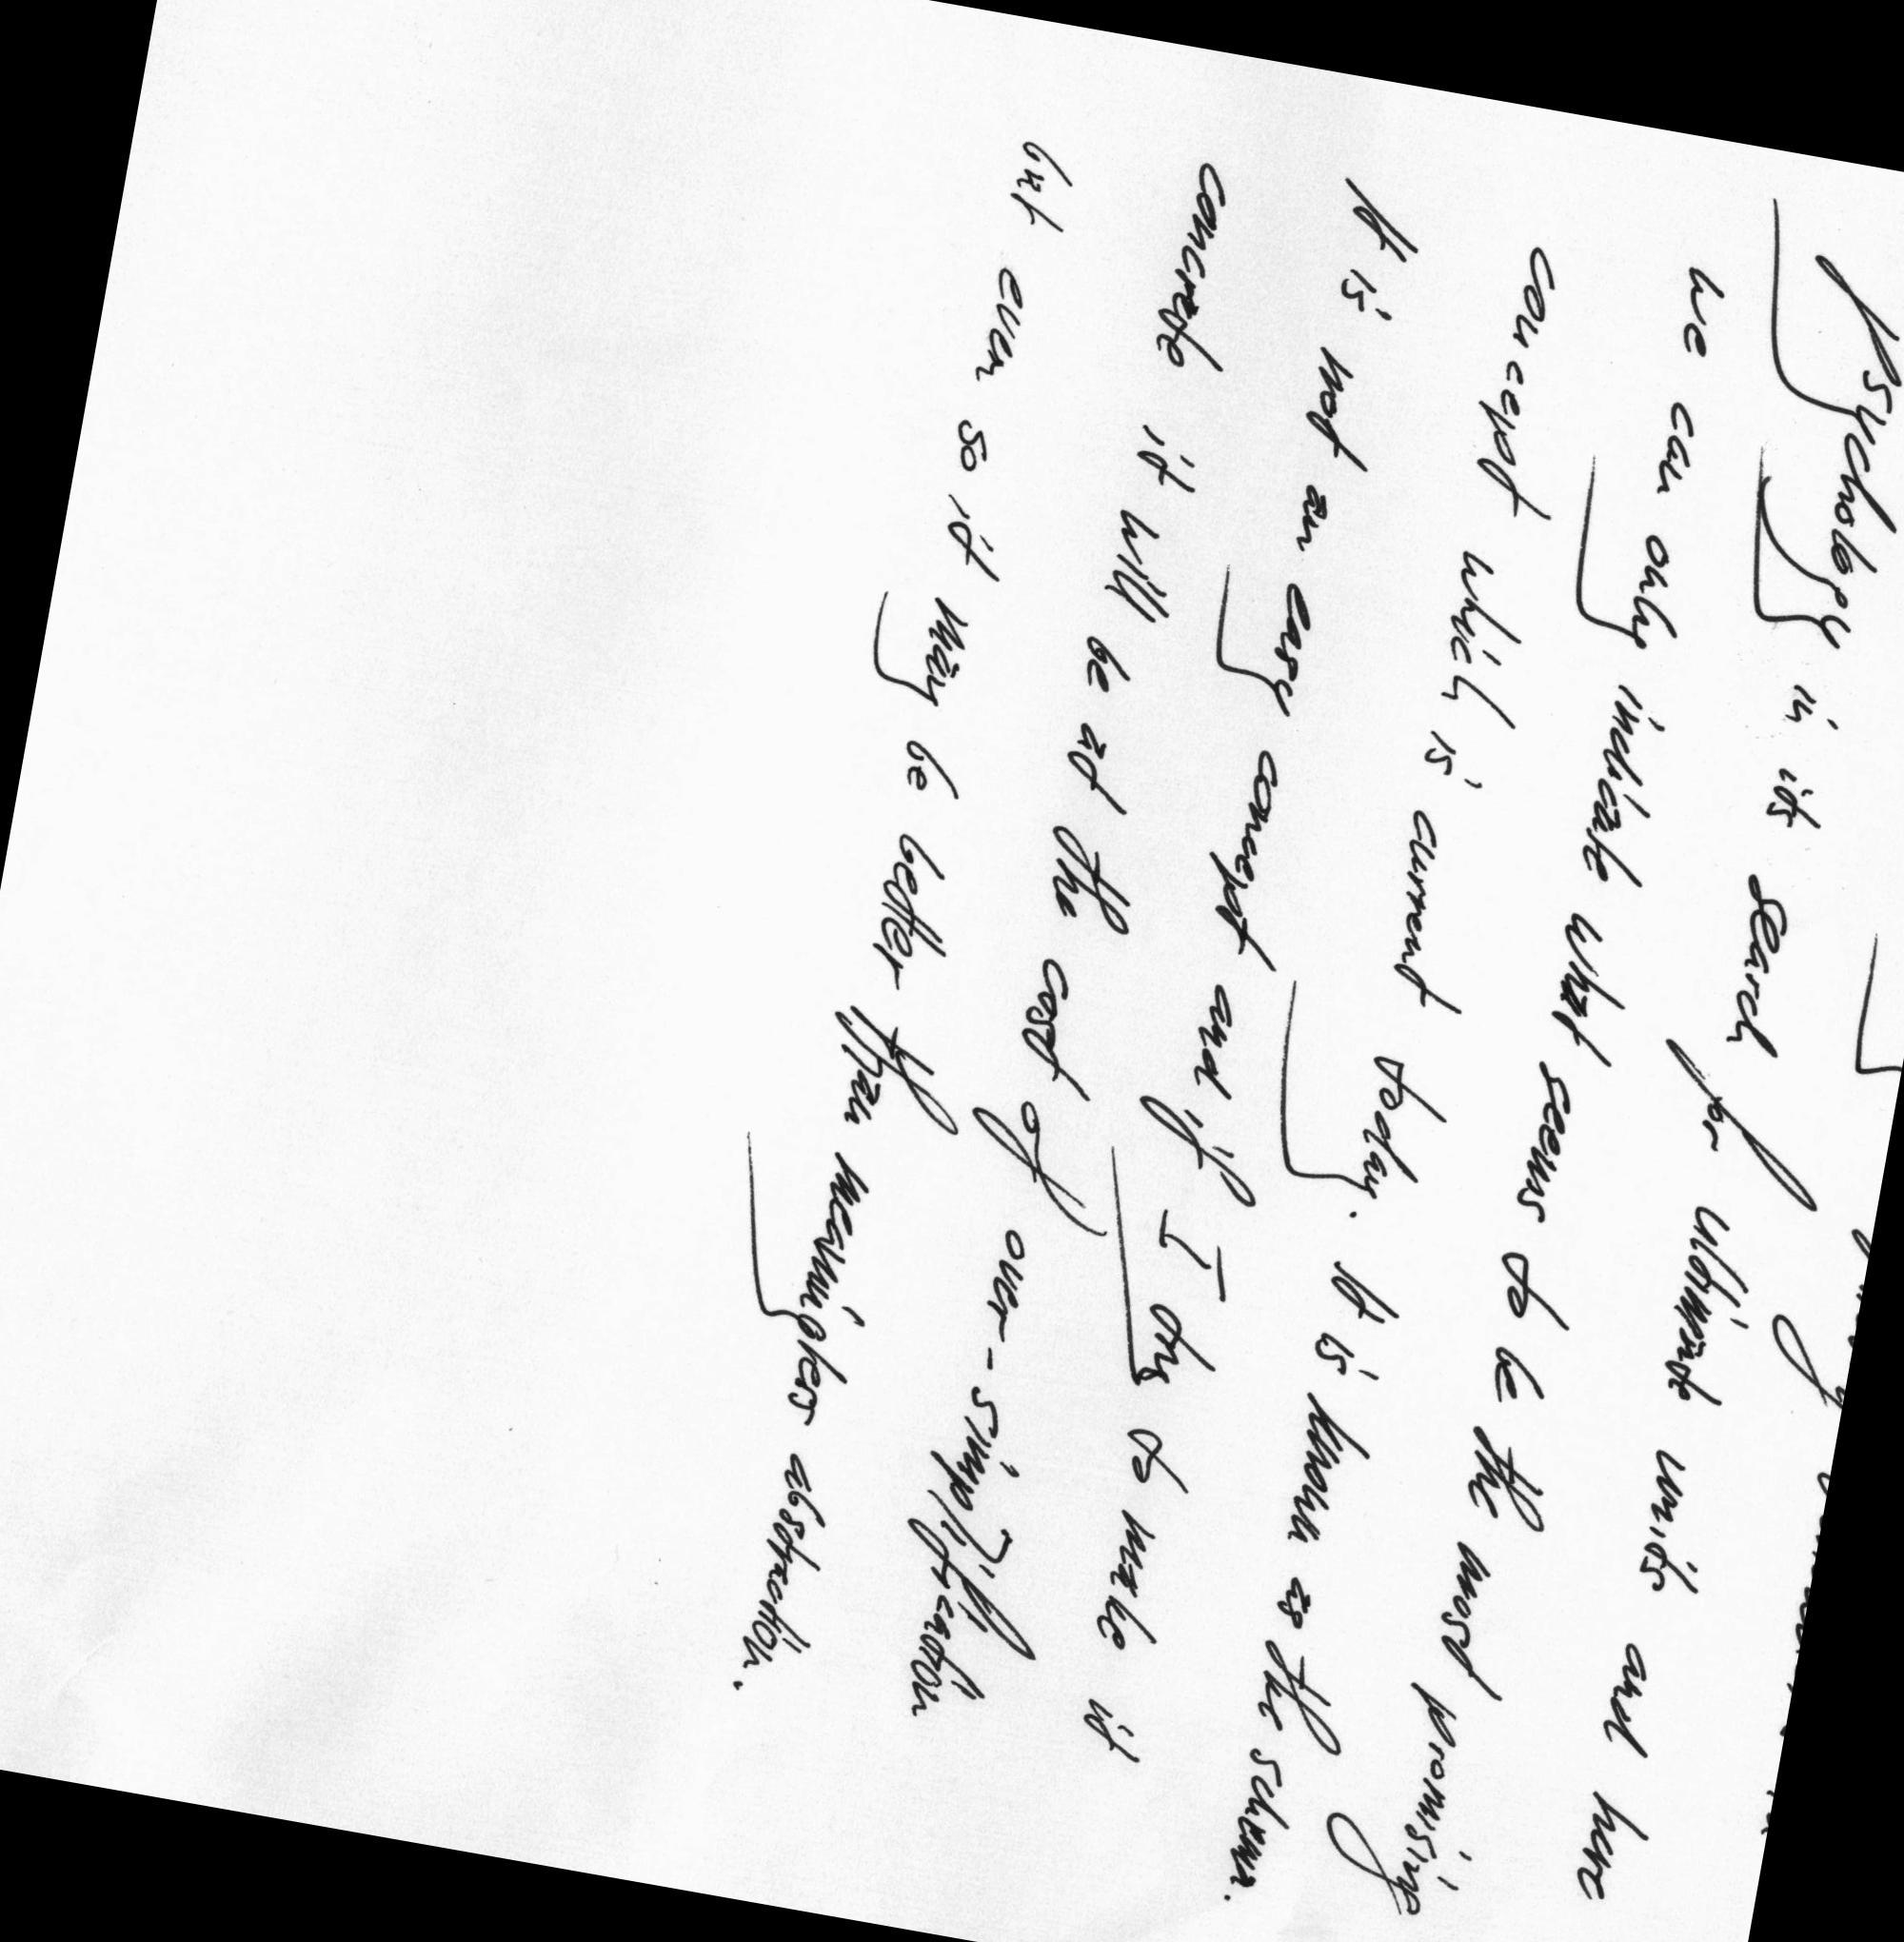 Psychology in its search for ultimate units and here
we can only indicate what seems to be the most promising
concept which is current today. It is known as the schema.
It is not an easy concept and if I try to make it
concrete it will be at the cost of over-simplification
but even so it may be better than meaningless abstraction.